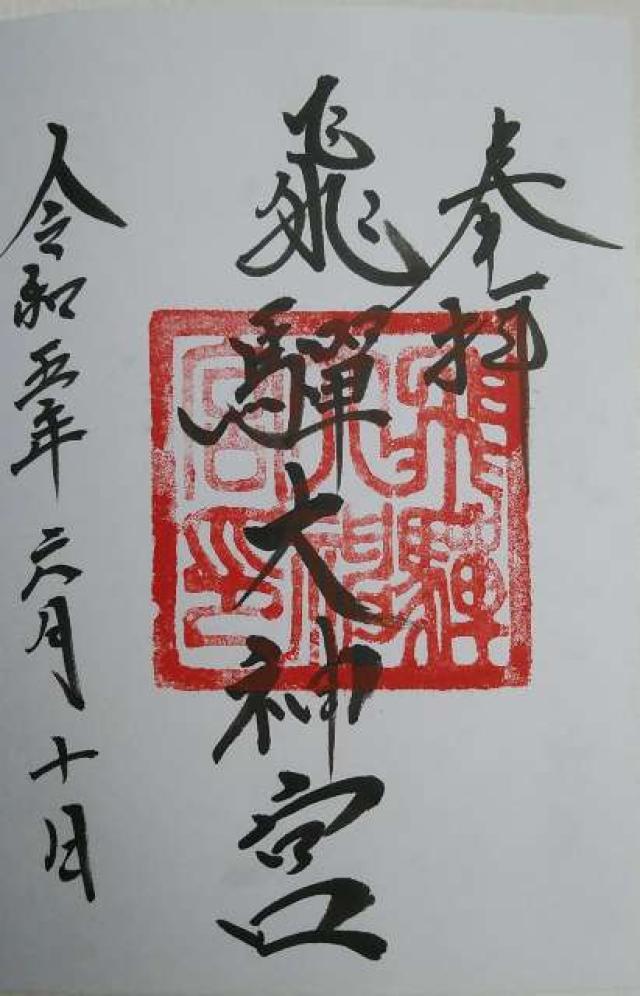 奉拝
飛騨大神宮
飛騨大神宮印
令和五年六月十日